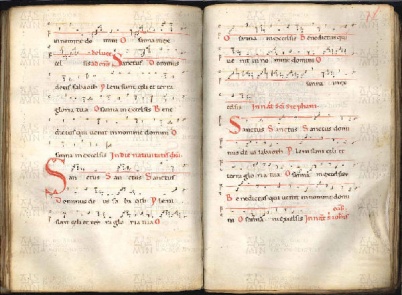 in nomine do mini O sanna inex
cel sis Sanctus Dominus
deus sabaoth Pleni sunt celi et terra
gloria tua Osanna inexcelsis Bene
dictus qui uenit innomine domini O
sanna inexcelsis In die natiuitatis
San ctus Sanctus Sanctus
Dominus de us sa ba oth Pleni
sunt celi et ter ra glo ria tua O
O sanna inexcelsis Benedictus qui
ue nit in no mine domini O
sanna inex
celsis
Sanctus Sanctus Sanctus domi
nus de us sabaoth Pleni sunt celi et
terra glo ria tua O sanna inexcelsis
Benedictus qui uenit innomine domi
ni O sanna inexcelsis